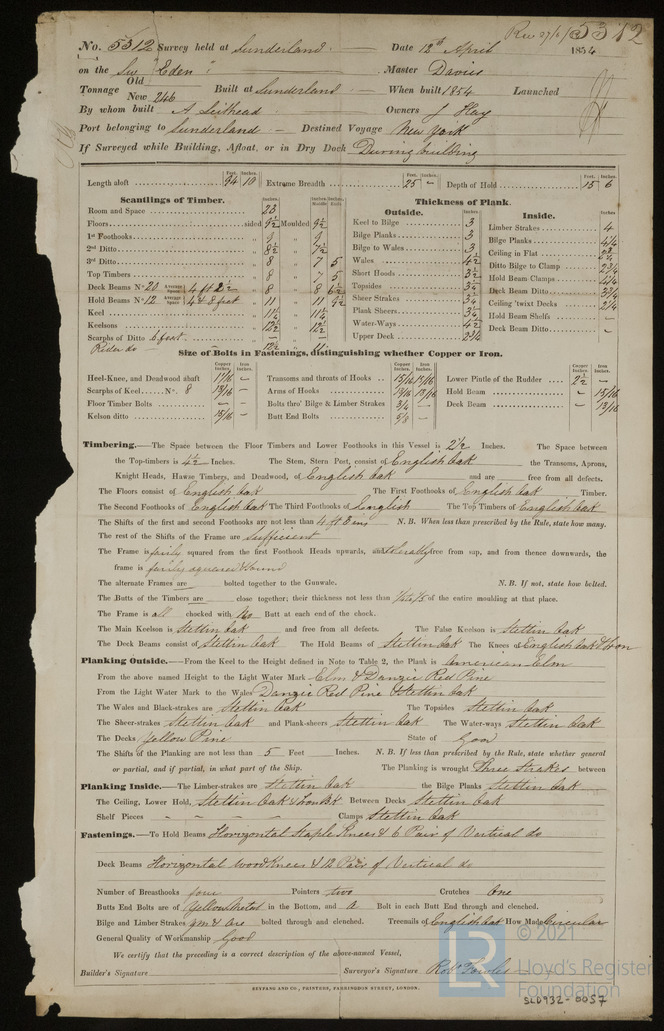 Rec 27/6/53 12
No. 5312 Survey held at Sunderland Date 12th April 1854
on the Sw "Eden" Master Davies
Tonnage Old New 246 Built at Sunderland When built 1854 Launched
By whom built A. Leithead Owners J Hay
Port belonging to Sunderland Destined Voyage New York
If Surveyed while Building, Afloat, or in Dry Dock During building
Feet. Inches. Feet. Inches. Feet. Inches.
Length aloft 94 10 Extreme Breadth 25 – Depth of Hold 15 6
Scantlings of Timber.
Room and Space 23
Floors sided 9½ Moulded 9½
1st Foothooks
2nd Ditto 8½ 7½
3rd Ditto 8 7 5
Top Timbers 8 7 5
Deck Beams No. 20 Average Space 4 ft 2½ 8 8 6½
Hold Beams No. 12 Average Space 11 11 9½
Keel 11½
Keelsons 12½ 12½
Scarphs of Ditto 6 feet
Rider do 12½ 11
Thickness of Plank.
Outside.
Keel to Bilge 3
Bilge Planks 3
Bilge to Wales 3
Wales 4½
Short Hoods 3½
Topsides
Sheer Strakes
Plank Sheers
Water-Ways 4½
Upper Deck 2¾
Inside.
Limber Strakes 4
Bilge Planks 4¼
Ceiling in Flat
Ditto Bilge to Clamp 2¾
Hold Beam Clamps 4¼
Deck Beam Ditto 3¾
Ceiling 'twixt Decks 2¼
Hold Beam Shelfs –
Deck Beam Ditto –
Size of Bolts in Fastenings, distinguishing whether Copper or Iron.
Copper Inches. Iron Inches. Copper Inches. Iron Inches. Copper Inches. Iron Inches.
Heel-Knee, and Deadwood abaft 17/16 –
Scarphs of Keel No. 8 13/16 –
Floor Timber Bolts – –
Kelson ditto 15/16 –
Transoms and throats of Hooks 15/16 15/16
Arms of Hooks 13/16 13/16
Bolts thro' Bilge & Limber Strakes 3/4 –
Butt End Bolts 5/8 –
Lower Pintle of the Rudder 2½ –
Hold Beam – 15/16
Deck Beam – 13/16
Timbering.—The Space between the Floor Timbers and Lower Foothooks in this Vessel is 2½ Inches. The Space between
the Top-timbers is 4½ Inches. The Stem, Stern Post, consist of English Oak the Transoms, Aprons,
Knight Heads, Hawse Timbers, and Deadwood, of English Oak and are free from all defects.
The Floors consist of English Oak The First Foothooks of English Oak Timber.
The Second Foothooks of English Oak The Third Foothooks of English The Top Timbers of English Oak
The Shifts of the first and second Foothooks are not less than 4 ft 8 ins N. B. When less than prescribed by the Rule, state how many.
The rest of the Shifts of the Frame are sufficient
The Frame is fairly squared from the first Foothook Heads upwards, and literally free from sap, and from thence downwards, the
frame is fairly squared & sound
The alternate Frames are bolted together to the Gunwale. N. B. If not, state how bolted.
The Butts of the Timbers are close together; their thickness not less than ¼ to ⅓ of the entire moulding at that place.
The Frame is all chocked with No Butt at each end of the chock.
The Main Keelson is Stettin Oak and free from all defects. The False Keelson is Stettin Oak
The Deck Beams consist of Stettin Oak The Hold Beams of Stettin Oak The Knees of English Oak & Iron
Planking Outside.—From the Keel to the Height defined in Note to Table 2, the Plank is American Elm
From the above named Height to the Light Water Mark Elm & Danzic Red Pine
From the Light Water Mark to the Wales Danzic Red Pine & Stettin Oak
The Wales and Black-strakes are Stettin Oak The Topsides Stettin Oak
The Sheer-strakes Stettin Oak and Plank-sheers Stettin Oak The Water-ways Stettin Oak
The Decks Yellow Pine State of Good
The Shifts of the Planking are not less than 5 Feet Inches. N. B. If less than prescribed by the Rule, state whether general
or partial, and if partial, in what part of the Ship. The Planking is wrought Three Strakes between
Planking Inside.—The Limber-strakes are Stettin Oak the Bilge Planks Stettin Oak
The Ceiling, Lower Hold, Stettin Oak Between Decks Stettin Oak
Shelf Pieces – Clamps Stettin Oak
Fastenings.—To Hold Beams Horizontal Staple Knees & 6 Pair of Vertical do
Deck Beams Horizontal wood knees & 12 Pairs of Vertical do
Number of Breasthooks four Pointers two Crutches One
Butts End Bolts are of Yellow Metal in the Bottom, and A Bolt in each Butt End through and clenched.
Bilge and Limber Strakes are bolted through and clenched. Treenails of English Oak How Made Circular
General Quality of Workmanship Good
We certify that the preceding is a correct description of the above-named Vessel,
Builder's Signature Surveyor's Signature Robt Fowles
SEYFANG AND CO., PRINTERS, FARRINGDON STREET, LONDON.
LR © 2021
Lloyd's Register
Foundation
SLD932-0057